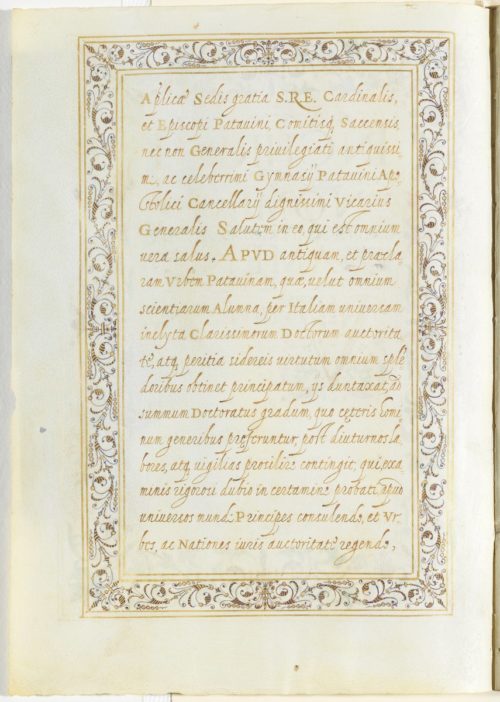 Aplicæ Sedis gratia S.R.E. Cardinalis,
et Episcopi Patavini Comitisq Saccensis
nec non Generalis privilegiati antiquissi
mi, ac celeberrimi Gymnasij Patavini Apo
stolici Cancellarij dignissimi Vicarius
Generalis Salutem in eo, qui est omnium
vera salus. APVD antiquam, et præcla
ram Vrbem Patavinam, quæ, velut omnium
scientiarum Alumna, per Italiam universam
inclyta Clarissimorum Doctorum auctorita
te, atq, peritia sidereis virtutum omnium sple
doribus obtinet principatum, ys duntaxat, ad
summum Doctoratus gradum, quo ceteris homi
num generibus præferuntur, post diuturnos la
bores, atq, vigilias prosilire contingit, qui, exa
minis rigorosi dubio in certamine probati, apud
universos mundi Principes consulendo, et Vr
bes, ac Nationes iuris auctoritate regendo,